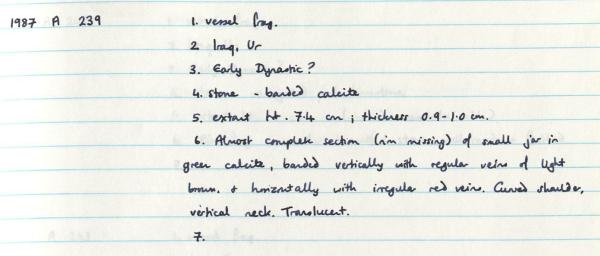 1987 A 239 1. vessel frag.
2. Iraq, Ur
3. Early Dynastic?
4. stone - banded calcite
5. extant ht. 7.4 cm ; thickness 0.9-1.0 cm.
6. Almost complete section (rim missing) of small jar in
green calcite, banded vertically with regular veins of light
brown, & horizontally with irregular red veins. Curved shoulder,
vertical neck. Translucent.
7.